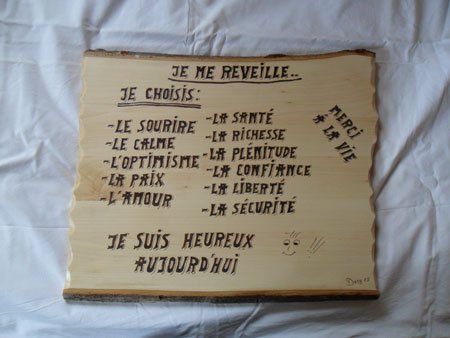 JE ME REVEILLE..
JE CHOISIS:
-LE SOURIRE
-LE CALME
-L'OPTIMISME
-LA PAIX
-L'AMOUR
-LA SANTÉ
-LA RICHESSE
-LA PLÉNITUDE
-LA CONFIANCE
-LA LIBERTÉ
-LA SÉCURITÉ
MERCI
À LA VIE
JE SUIS HEUREUX
AUJOURD'HUI
!!!